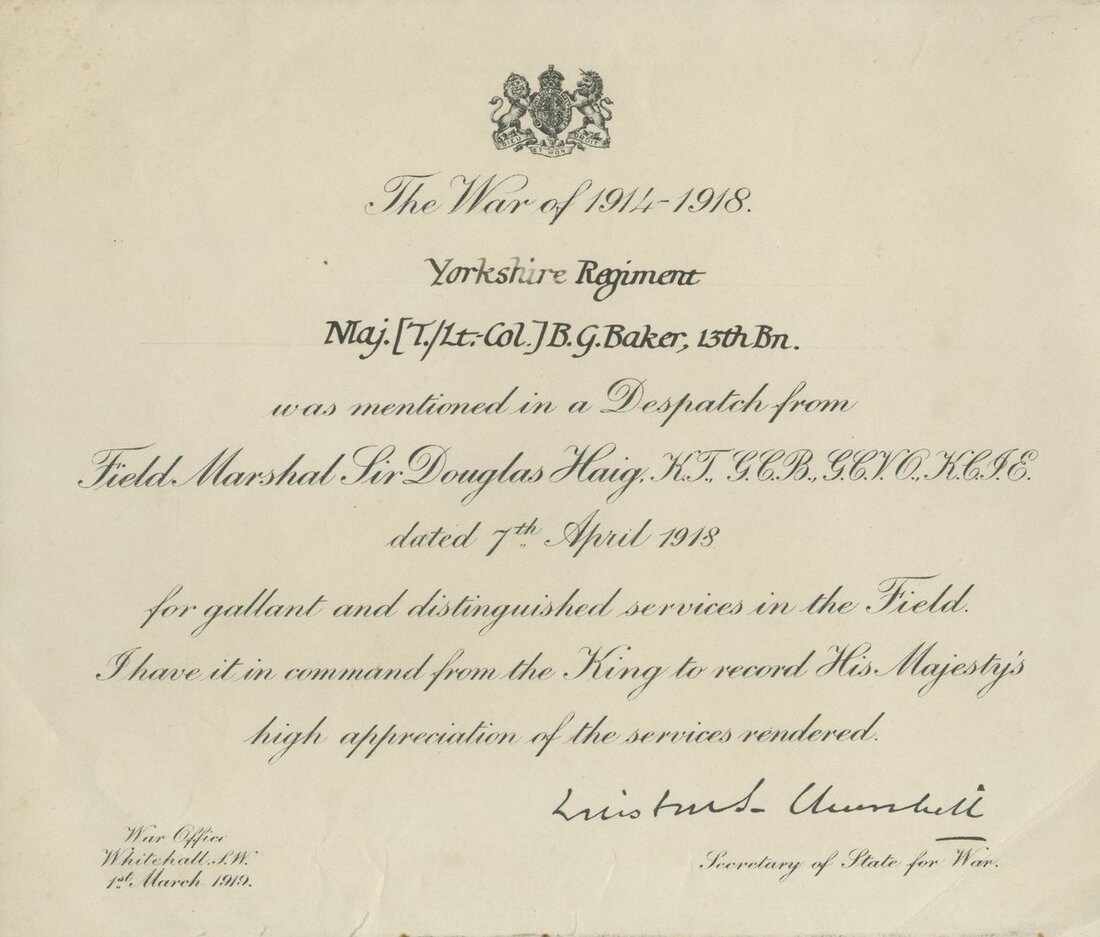 DIEU ET MON DROIT
The War of 1914-1918.
Yorkshire Regiment
Maj. [T./Lt.-Col.] B. G. Baker, 13th Bn.
was mentioned in a Despatch from
Field Marshal Sir Douglas Haig, K.T., G.C.B., G.C.V.O., K.C.I.E.
dated 7th April 1918
for gallant and distinguished services in the Field.
I have it in command from the King to record His Majesty's
high appreciation of the services rendered.
Winston S. Churchill
War Office
Whitehall, S.W.
1st March 1919.
Secretary of State for War.